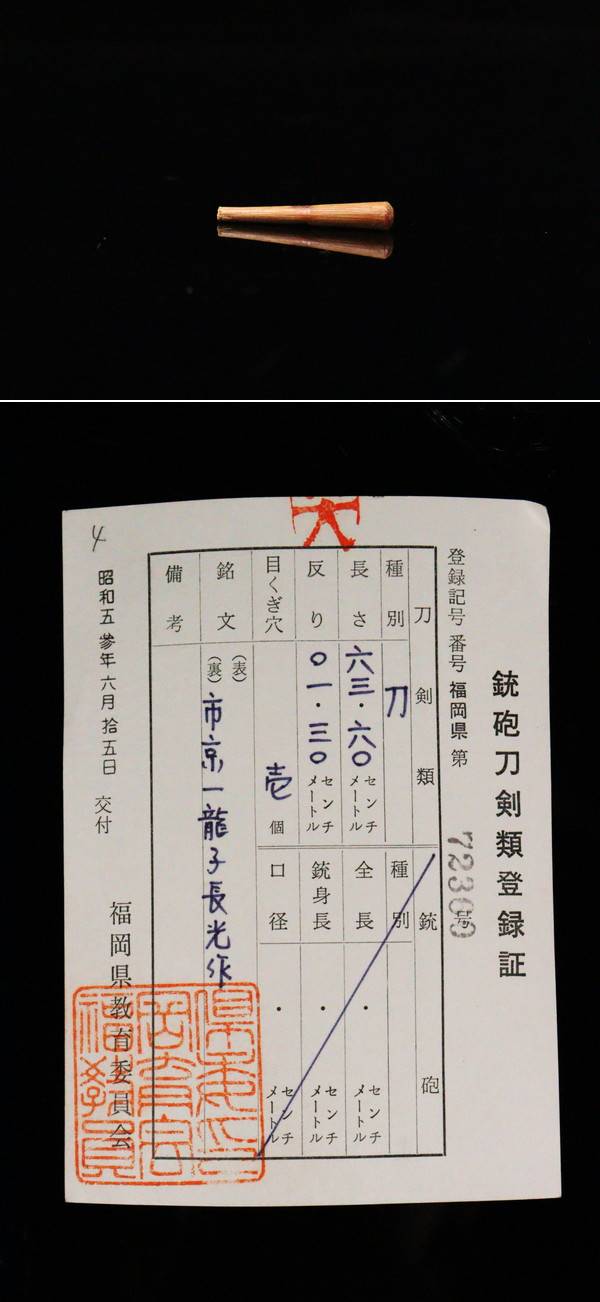 銃砲刀剣類登録証
登録記号番号福岡県 第 72309 号
刀剣類
種別 刀
長さ 六三・六〇 センチメートル
反り 〇一・三〇 センチメートル
目くぎ穴 壱 個
銘文 (表) (裏) 市京一龍子長光作
備考
銃砲
種別
全長 ・ センチメートル
銃身長 ・ センチメートル
口径 ・ センチメートル
昭和五参年六月拾五日 交付
福岡県教育委員会
4